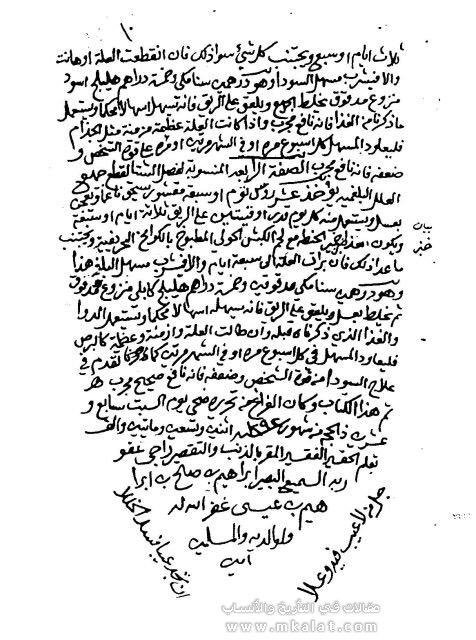 ثلاث ايام او سبع ويجتنب كل شيء سوا ذلك فان انقطعت العلة او هانت
والا فيشرب مسهل السودا وهو درهمين سنامكي وخمسة دراهم هليلج اسود
منزوع مدقوق يخلط الجميع ويلعق على الريق فانه يسهل اسهالا محكما ويستعمل
ما ذكرنا من الغذا فانه نافع مجرب واذا كانت العلة عظيمة مزمنة مثل الجذام
فليعاود المسهل كل اسبوع مره او في الشهر مرتين او مره على قوة الشخص و
ضعفه فانه نافع مجرب الصفة الرابعه المنسوبة لفصل الشتا لقطع جميع
العلل البلغميه يؤخذ عشر روس ثوم او سبعة مقشور يسحق ناعما ويعجن
بعسل ويستعمل منه كل يوم على الريق ثلاثة ايام او سبعة
ويكون الغذا خبز الحنطه مع لحم الكبش الحولي المطبوخ بالحوايج الحريفية ويجتنب
بيان
خبز
ما عدا ذلك فان برئت العلة الى سبعة ايام والا فيشرب مسهل البلغم هذا
وهو درهمين سنامكي مدقوقين وخمسة دراهم هليلج كابلي منزوع مدقوق
ثم يخلط بعسل ويلعق على الريق فانه يسهله اسهالا محكما ويستعمل الدوا
والغذا الذي ذكرناه قبله وان طالت العلة وازمنة وعظمة كالبرص
فليعاود المسهل في كل اسبوع مره او في الشهر مرتين كما ذكرنا تقدم في
علاج السودا من قوة الشخص وضعفه فانه نافع صحيح مجرب
تم هذا الكتاب وكان الفراغ من تحريره ضحى يوم السبت سابع و
عشرين ذا الحجه من شهور ١٢٩٢ سنه اثنين وتسعين وماتين والف
بقلم الحقير الفقير المقر بالذنب والتقصير راجي عفو
ربه السميع البصير ابراهيم بن صالح بن ابرا
هيم بن عيسى غفر الله له
ولوالديه والمسلمين
آمين
ان تجد عيبا فسد الخللا
جل من لا عيب فيه وعلا
مقالات في التأريخ والأنساب
www.mkalat.com